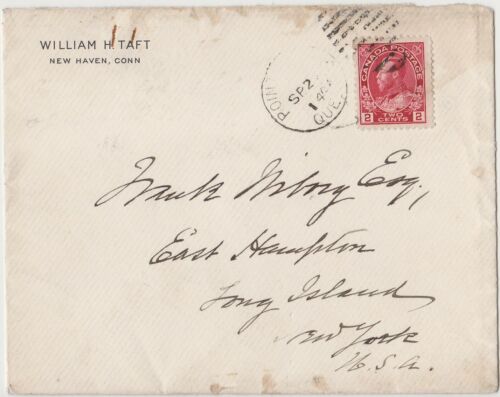 WILLIAM H. TAFT
NEW HAVEN, CONN
POIN
SP 2
14
QUE
CANADA POSTAGE
2 TWO CENTS 2
Frank Wiborg Esq.,
East Hampton
Long Island
New York
U.S.A.